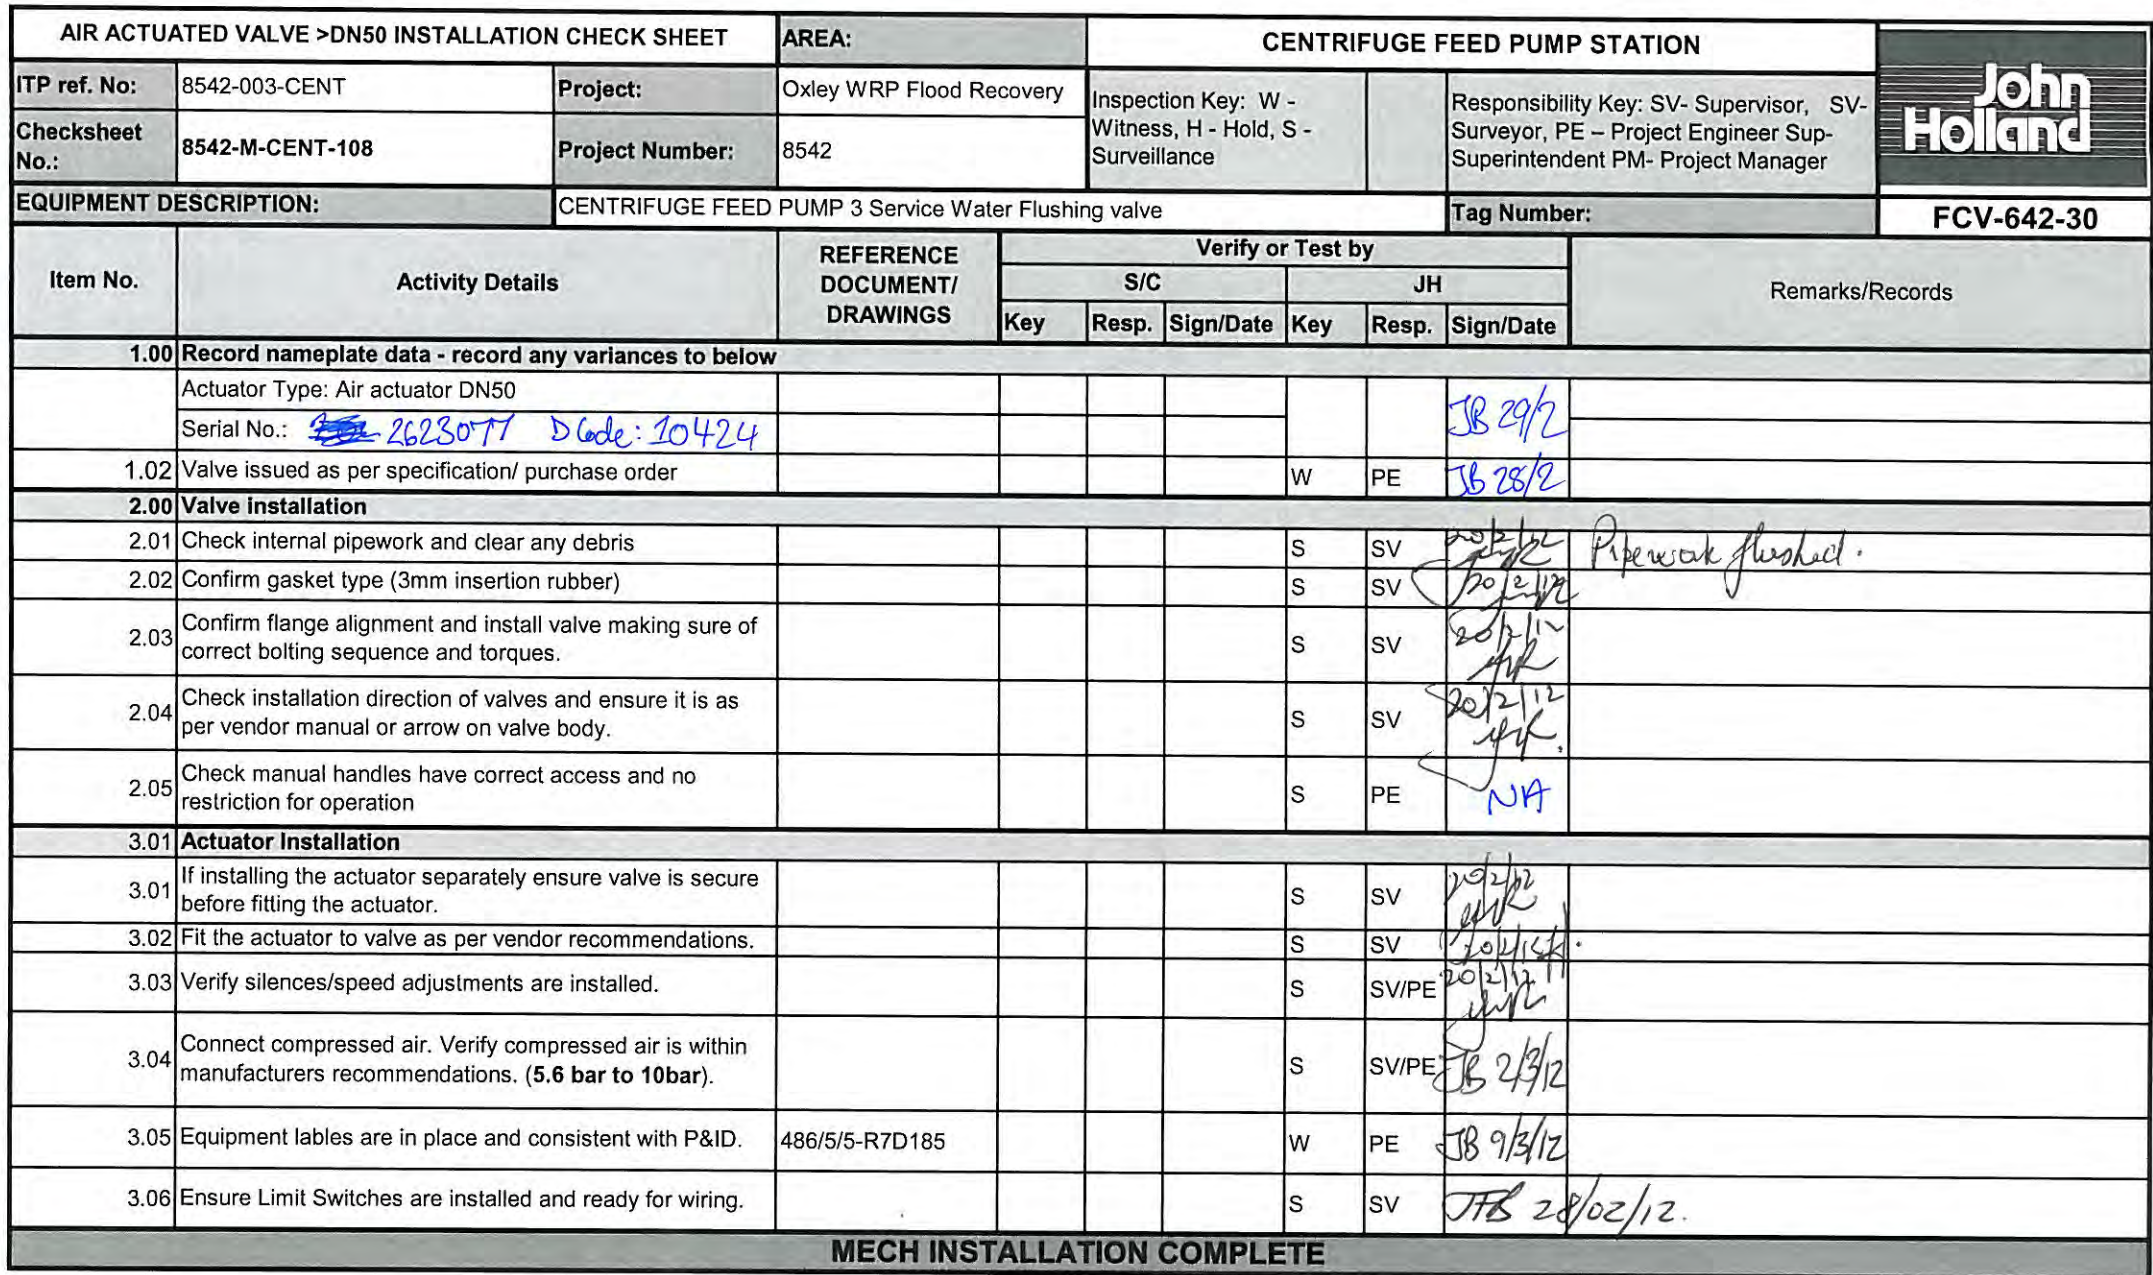 AIR ACTUATED VALVE >DN50 INSTALLATION CHECK SHEET AREA: CENTRIFUGE FEED PUMP STATION
John
Holland
ITP ref. No: 8542-003-CENT Project: Oxley WRP Flood Recovery
Inspection Key: W -
Witness, H - Hold, S -
Surveillance
Responsibility Key: SV- Supervisor, SV-
Surveyor, PE – Project Engineer Sup-
Superintendent PM- Project Manager
Checksheet
No.: 8542-M-CENT-108 Project Number: 8542
EQUIPMENT DESCRIPTION: CENTRIFUGE FEED PUMP 3 Service Water Flushing valve Tag Number: FCV-642-30
Item No. Activity Details
REFERENCE
DOCUMENT/
DRAWINGS
Verify or Test by
S/C JH
Key Resp. Sign/Date Key Resp. Sign/Date
Remarks/Records
1.00 Record nameplate data - record any variances to below
Actuator Type: Air actuator DN50
JB 29/2
Serial No.: 2623077 D Code: 10424
1.02 Valve issued as per specification/ purchase order W PE JB 28/2
2.00 Valve installation
2.01 Check internal pipework and clear any debris S SV 20/2/12 Pipework flushed.
2.02 Confirm gasket type (3mm insertion rubber) S SV 20/2/12
2.03 Confirm flange alignment and install valve making sure of
correct bolting sequence and torques. S SV 20/2/12
2.04 Check installation direction of valves and ensure it is as
per vendor manual or arrow on valve body. S SV 20/2/12
2.05 Check manual handles have correct access and no
restriction for operation S PE NA
3.01 Actuator Installation
3.01 If installing the actuator separately ensure valve is secure
before fitting the actuator. S SV 20/2/12
3.02 Fit the actuator to valve as per vendor recommendations. S SV
3.03 Verify silences/speed adjustments are installed. S SV/PE 20/2/12
3.04 Connect compressed air. Verify compressed air is within
manufacturers recommendations. (5.6 bar to 10bar). S SV/PE JB 2/3/12
3.05 Equipment lables are in place and consistent with P&ID. 486/5/5-R7D185 W PE JB 9/3/12
3.06 Ensure Limit Switches are installed and ready for wiring. S SV JFB 28/02/12.
MECH INSTALLATION COMPLETE